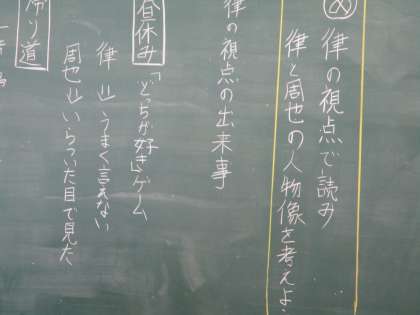 め
律の視点で読み
律と周也の人物像を考えよ
律の視点の出来事
昼休み
「どっちが好き」ゲーム
律⇓うまく言えない
周也⇓いらついた目で見た
帰り道